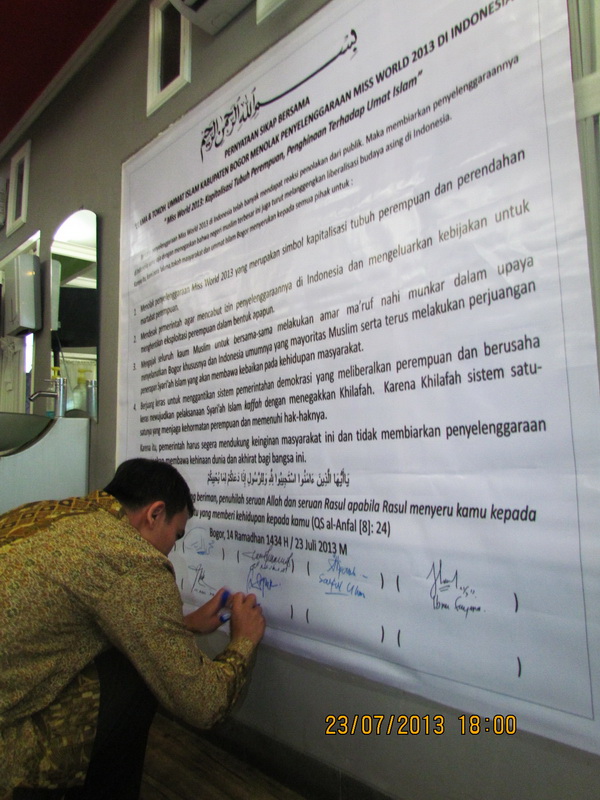 بسم الله الرحمن الرحيم
PERNYATAAN SIKAP BERSAMA
& TOKOH UMMAT ISLAM KABUPATEN BOGOR MENOLAK PENYELENGGARAAN MISS WORLD 2013 DI INDONESIA
"Miss World 2013: Kapitalisasi Tubuh Perempuan, Penghinaan Terhadap Umat Islam"
penyelenggaraan Miss World 2013 di Indonesia telah banyak mendapat reaksi penolakan dari publik. Maka membiarkan penyelenggaraannya
bahwa negeri muslim terbesar ini juga turut melanggengkan liberalisasi budaya asing di Indonesia.
tokoh masyarakat dan ummat Islam Bogor menyerukan kepada semua pihak untuk :
1. Menolak penyelenggaraan Miss World 2013 yang merupakan simbol kapitalisasi tubuh perempuan dan perendahan
martabat perempuan.
2. Mendesak pemerintah agar mencabut izin penyelenggaraannya di Indonesia dan mengeluarkan kebijakan untuk
menghentikan eksploitasi perempuan dalam bentuk apapun.
3. Mengajak seluruh kaum Muslim untuk bersama-sama melakukan amar ma'ruf nahi munkar dalam upaya
menyelamatkan Bogor khususnya dan Indonesia umumnya yang mayoritas Muslim serta terus melakukan perjuangan
penerapan Syari'ah Islam yang akan membawa kebaikan pada kehidupan masyarakat.
4. Berjuang keras untuk menggantikan sistem pemerintahan demokrasi yang meliberalkan perempuan dan berusaha
keras mewujudkan pelaksanaan Syari'ah Islam kaffah dengan menegakkan Khilafah. Karena Khilafah sistem satu-
satunya yang menjaga kehormatan perempuan dan memenuhi hak-haknya.
Karena itu, pemerintah harus segera mendukung keinginan masyarakat ini dan tidak membiarkan penyelenggaraan
membawa kehinaan dunia dan akhirat bagi bangsa ini.
يَاأَيُّهَا الَّذِينَ ءَامَنُوا اسْتَجِيبُوا لِلَّهِ وَلِلرَّسُولِ إِذَا دَعَاكُمْ لِمَا يُحْيِيكُمْ
beriman, penuhilah seruan Allah dan seruan Rasul apabila Rasul menyeru kamu kepada
yang memberi kehidupan kepada kamu (QS al-Anfal [8]: 24)
Bogor, 14 Ramadhan 1434 H / 23 Juli 2013 M
23/07/2013 18:00